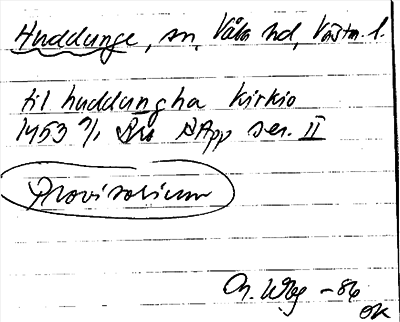 Huddunge, sn, Våla hd, Västm. l.
til huddungha kirkio
1453 9/1 Bro RApp ser. II
Provisorium
Ch. Wbg -86
OK